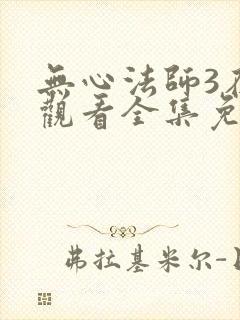 無心法師3
觀看全集免
弗拉基米尔-